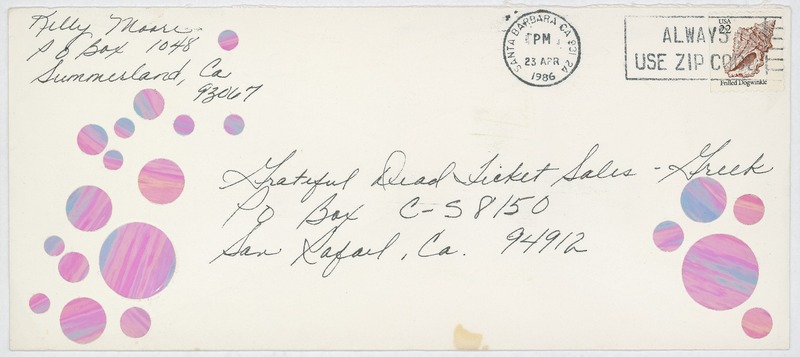 Kelly Moore
P O Box 1048
Summerland, Ca
93067
SANTA BARBARA CA 931 2A
PM
23 APR
1986
ALWAYS
USE ZIP CODE
USA
22
Frilled Dogwinkle
Grateful Dead Ticket Sales - Greek
PO Box C-S8150
San Rafael, Ca. 94912